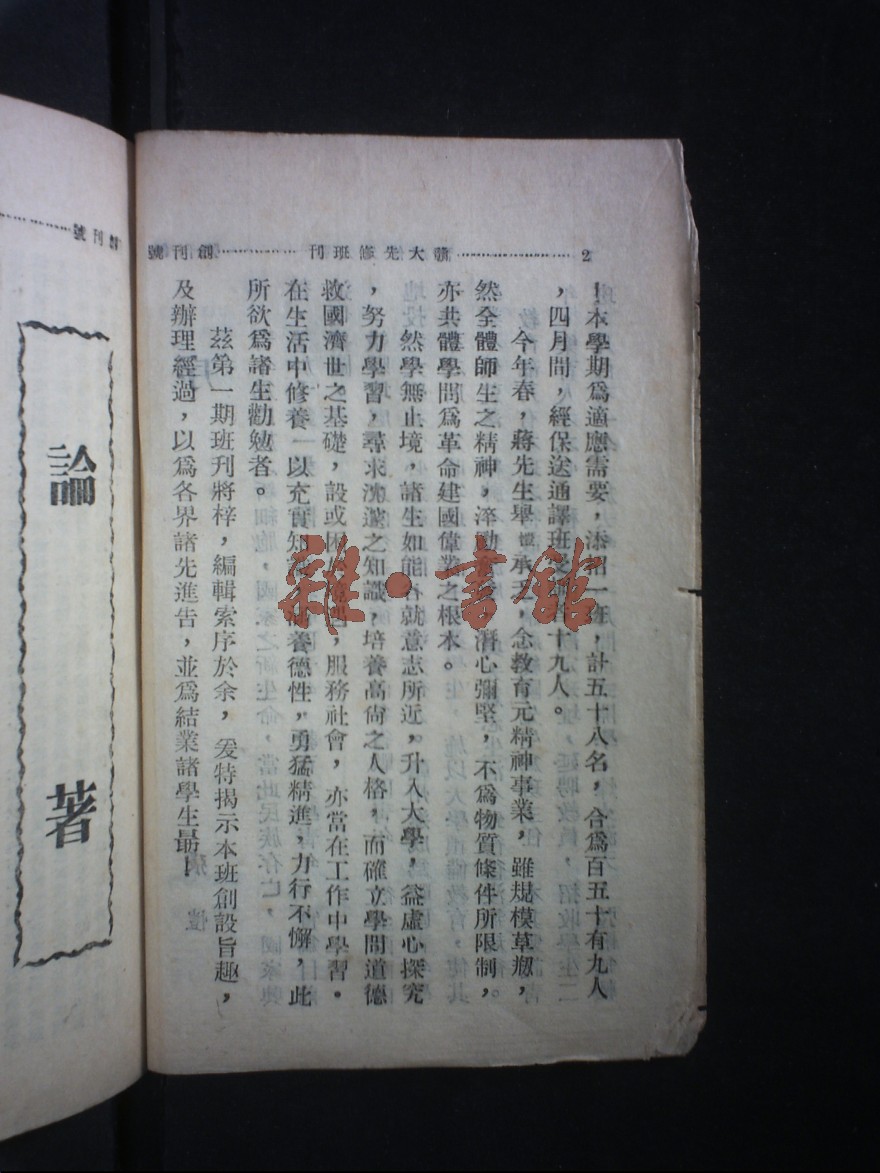 2 贛大先修班刊 創刊號
本學期爲適應需要，添招一班，計五十八名，合爲百五十有九人
，四月間，經保送通譯班受 十九人。
今年春，蔣先生舉 承乏，念教育元精神事業，雖規模草剏，
然全體師生之精神，淬勵 濟心彌堅，不爲物質條件所限制，
亦共體學問爲革命建國偉業之根本。
然學無止境，諸生如能各就意志所近，升入大學，益虛心探究
，努力學習，尋求沈邃之知識，培養高尙之人格，而確立學問道德
救國濟世之基礎，設或困 ，服務社會，亦當在工作中學習。
在生活中修養 以充實知 養德性，勇猛精進，力行不懈，此
所欲爲諸生勸勉者。
茲第一期班刊將梓，編輯索序於余，爰特揭示本班創設旨趣，
及辦理經過，以爲各界諸先進告，並爲結業諸學生最
刊號
論著
雜·書館